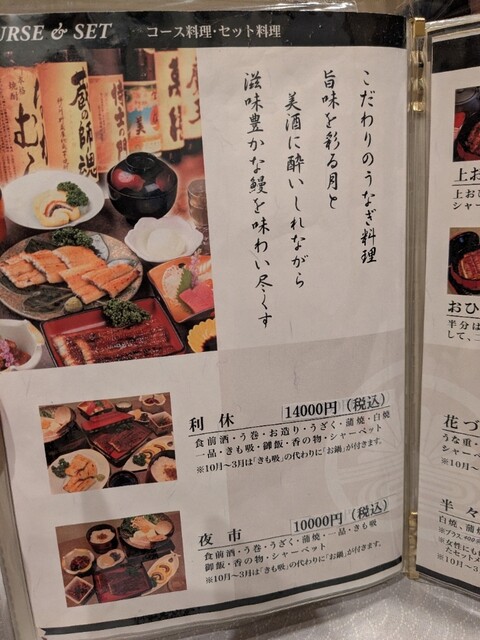 URSE & SET コース料理・セット料理
こだわりのうなぎ料理
旨味を彩る月と
美酒に酔いしれながら
滋味豊かな鰻を味わい尽くす
蔵の師魂
利休 14000円（税込）
食前酒・う巻・お造り・うざく・蒲焼・白焼
一品・きも吸・御飯・香の物・シャーベット
※10月～3月は「きも吸」の代わりに「お鍋」が付きます。
夜市 10000円（税込）
食前酒・う巻・うざく・蒲焼・一品・きも吸
御飯・香の物・シャーベット
※10月～3月は「きも吸」の代わりに「お鍋」が付きます。
上お
上おひ
シャー
おひ
半分は
して、
花づ
うな重・
シャーベ
※10月～3
半々
白焼、蒲
※プラス
※女性にも
たセット
※10月～3